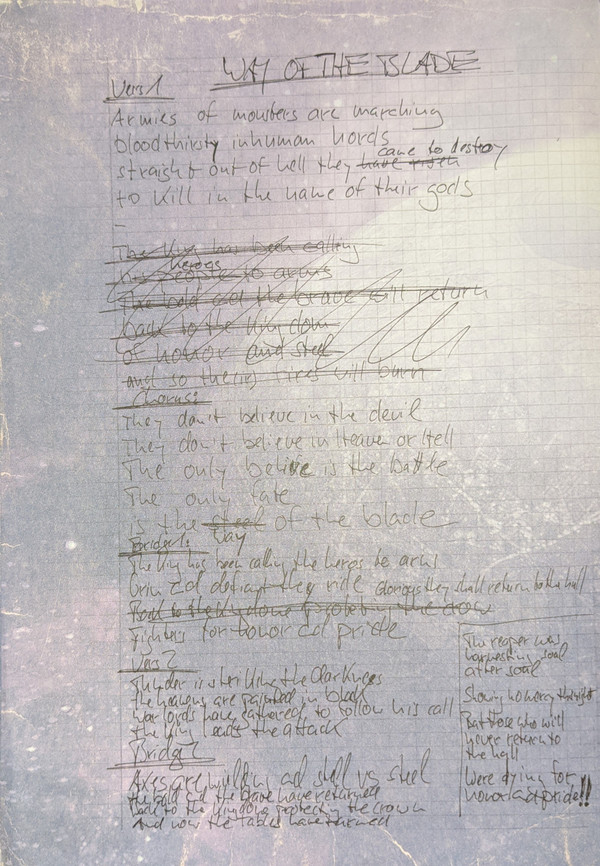 WAY OF THE BLADE
Vers 1
Armies of monsters are marching
bloodthirsty inhuman hords
came to destroy
straight out of hell they have risen
to kill in the name of their gods
-
The King has been calling
heroes
his people to arms
The bold and the brave will return
back to the kingdom
of honor and steel
and so the fires will burn
Chorus:
They don't believe in the devil
They don't believe in Heaven or Hell
The only belive is the battle
The only fate
is the steel of the blade
way
Bridge 1:
The King has been calling the heros to arms
and defiant they ride Glorious they shall return to the hall
Back to the
fighters for honor ad pride
Vers 2
Thunder is the Darknees
the heavens are painted in black
warlords have gathered to follow his call
the King leads the attack
Bridge 2
Axes are ad steel vs steel
the bold ad the brave have returned
back to the kingdom protecting the crown
And now the tables have turned
The reaper was
harvesting soul
after soul
Showing no mercy
But those who will
never return to
the hall
Were dying for
honor ad pride!!